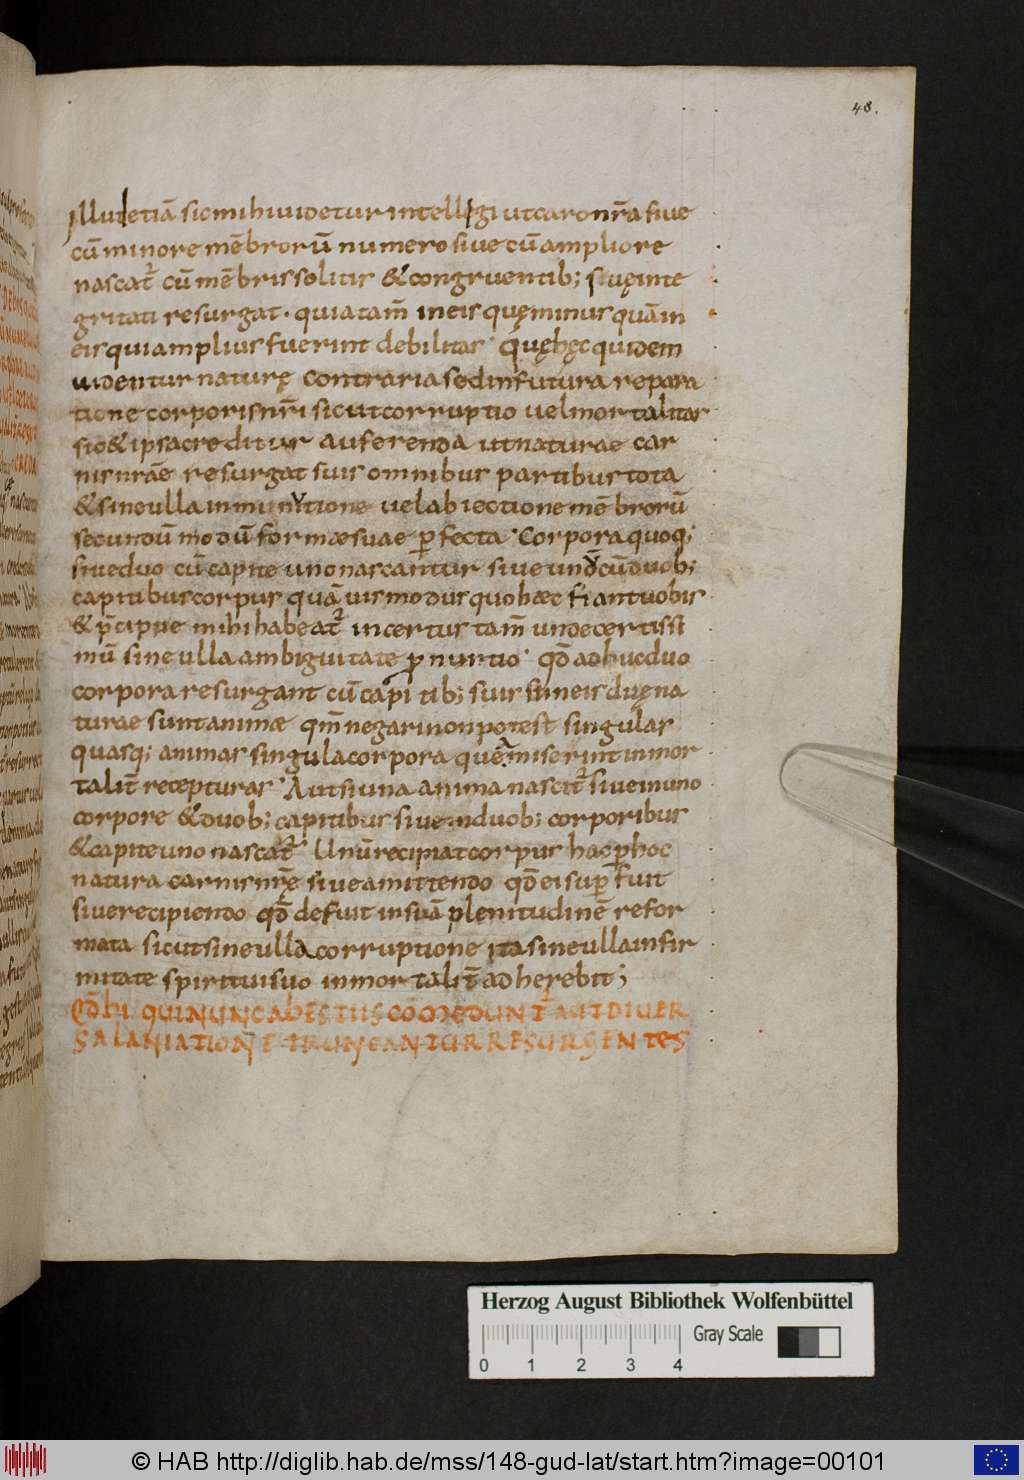 48.
illud etiā sic mihi uidetur intellegi ut caro nr̄a siue
cū minore mēbrorū numero siue cū ampliore
nascat᷑ cū mēbris solitis & congruentib; suę inte
gritati resurgat· quia tam̄ in eis quę minus quā in
eis qui amplius fuerint debilitas· Quę hęc quidem
uidentur naturę contraria sed in futura repara
tione corporis nr̄i sicut corruptio uel mortalitas
sic & ipsa creditur auferenda ut naturae car
nis nrāe resurgat suis omnibus partibus tota
& sine ulla inmunitione uel abiectione mēbrorū
secundū modū formae suae ꝑfecta· Corpora quoq;
siue duo cū capite uno nascantur siue unū cū duob;
capitibus corpus quāuis modus quo haec fiant uobis
& p̄cipue mihi habeat᷑ incertus tam̄ unde certissi
mū sine ulla ambiguitate ꝓnuntio· qđ adhuc duo
corpora resurgant cū capitib; suis si in eis duę na
turae sunt animae qm̄ negari non potest singulas
quasq; animas singula corpora quę amiserint inmor
talit̄ recepturas· Aut si una anima nascit᷑ siue in uno
corpore & duob; capitibus siue in duob; corporibus
& capite uno nascat᷑· Unū recipiat corpus hac ꝑ hoc
natura carnis nr̄ę siue amittendo qđ ei suꝑfuit
siue recipiendo qđ defuit in suā plenitudinē refor
mata sicut sine ulla corruptione ita sine ulla infir
mitate spiritui suo inmortalit̄ adherebit;
Qđ hi qui nunc a bestiis comedunt᷑ aut diuer
sa laniatione truncantur resurgentes
Herzog August Bibliothek Wolfenbüttel
Gray Scale
0 1 2 3 4
© HAB http://diglib.hab.de/mss/148-gud-lat/start.htm?image=00101